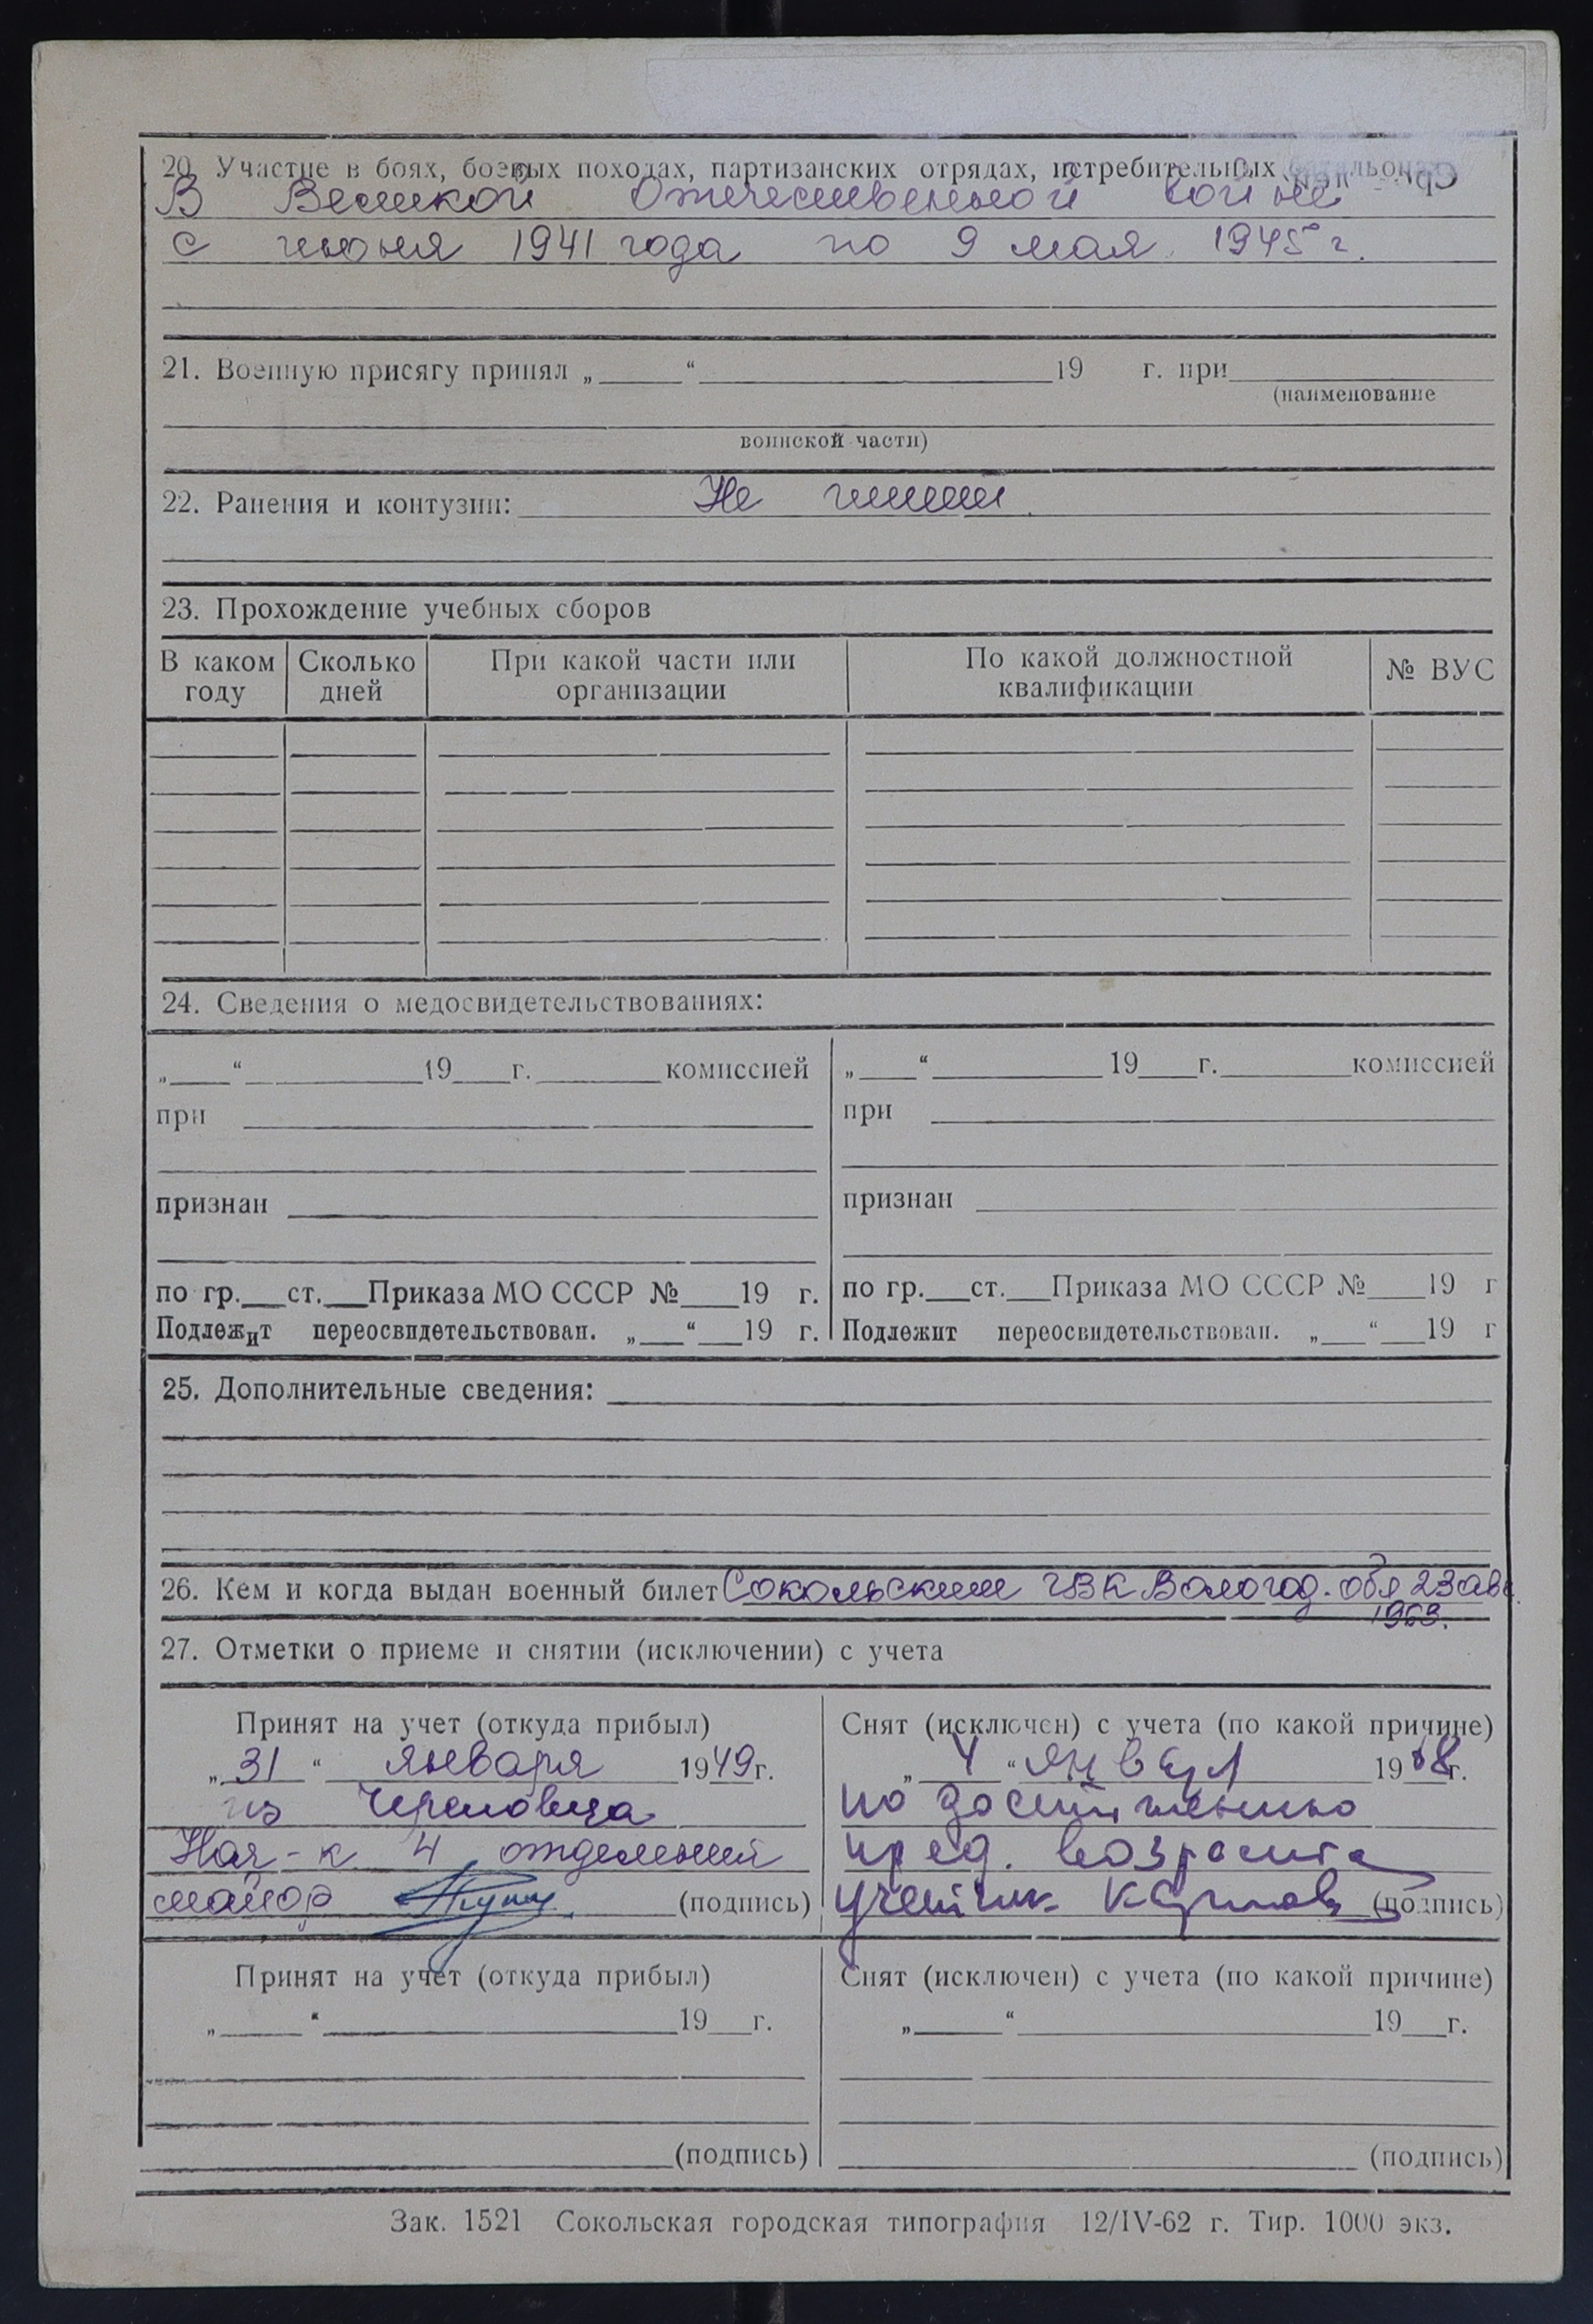 20. Участие в боях, боевых походах, партизанских отрядах, истребительных батальонах
В Великой Отечественной войне
с июня 1941 года по 9 мая 1945 г.
21. Военную присягу принял „ “ 19 г. при
(наименование
воинской части)
22. Ранения и контузии: Не имеет
23. Прохождение учебных сборов
В каком году Сколько дней При какой части или организации По какой должностной квалификации № ВУС
24. Сведения о медосвидетельствованиях:
„ “ 19 г. комиссией „ “ 19 г. комиссией
при при
признан признан
по гр. ст. Приказа МО СССР № 19 г. по гр. ст. Приказа МО СССР № 19 г
Подлежит переосвидетельствован. „ “ 19 г. Подлежит переосвидетельствован. „ “ 19 г
25. Дополнительные сведения:
26. Кем и когда выдан военный билет Сокольским ГВК Вологод. обл 23 авг.
1963.
27. Отметки о приеме и снятии (исключении) с учета
Принят на учет (откуда прибыл) Снят (исключен) с учета (по какой причине)
„ 31 “ января 1949 г. „ 4 “ января 1968 г.
из Череповца по достижению
Нач-к 4 отделения пред. возраста
майор (подпись) (подпись)
Принят на учет (откуда прибыл) Снят (исключен) с учета (по какой причине)
„ “ 19 г. „ “ 19 г.
(подпись) (подпись)
Зак. 1521 Сокольская городская типография 12/IV-62 г. Тир. 1000 экз.